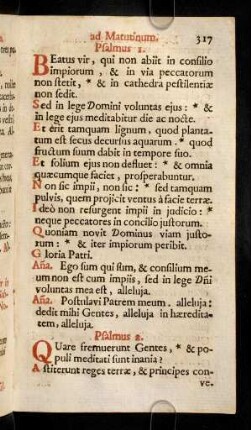 ad Matutinum. 317
Psalmus 1.
BEatus vir, qui non abiit in consilio
impiorum, & in via peccatorum
non stetit, * & in cathedra pestilentiæ
non sedit.
Sed in lege Domini voluntas ejus: * &
in lege ejus meditabitur die ac nocte.
Et erit tamquam lignum, quod planta-
tum est secus decursus aquarum. * quod
fructum suum dabit in tempore suo.
Et folium ejus non defluet: * & omnia
quæcumque faciet, prosperabuntur.
Non sic impii, non sic: * sed tamquam
pulvis, quem projicit ventus à facie terræ.
Ideò non resurgent impii in judicio: *
neque peccatores in concilio justorum.
Quoniam novit Dominus viam justo-
rum: * & iter impiorum peribit.
Gloria Patri.
Aña. Ego sum qui sum, & consilium me-
um non est cum impiis, sed in lege Dñi
voluntas mea est, alleluja.
Aña. Postulavi Patrem meum. alleluja:
dedit mihi Gentes, alleluja in hæredita-
tem, alleluja.
Psalmus 2.
QUare fremuerunt Gentes, * & po-
puli meditati sunt inania?
Astiterunt reges terræ, & principes con-
ve-